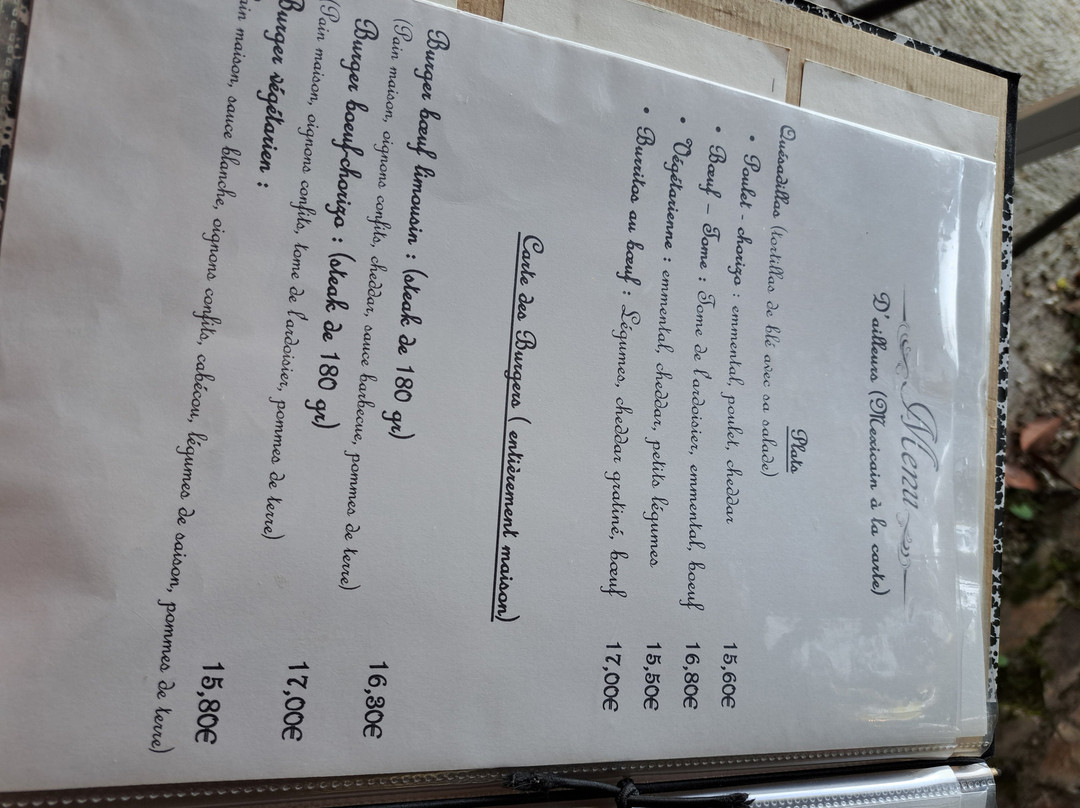 Menu
D'ailleurs (Mexicain à la carte)
Plats
Quésadillas (tortillas de blé avec sa salade)
• Poulet - chorizo : emmental, poulet, cheddar 15,60€
• Bœuf – Tome : Tome de l'ardoisier, emmental, boeuf 16,80€
• Végétarienne : emmental, cheddar, petits légumes 15,50€
• Burritos au bœuf : Légumes, cheddar gratiné, bœuf 17,00€
Carte des Burgers ( entièrement maison)
Burger bœuf limousin : (steak de 180 gr)
(Pain maison, oignons confits, cheddar, sauce barbecue, pommes de terre) 16,80€
Burger boeuf-chorizo : (steak de 180 gr)
(Pain maison, oignons confits, tome de l'ardoisier, pommes de terre) 17,00€
Burger végétarien :
ain maison, sauce blanche, oignons confits, cabécou, légumes de saison, pommes de terre) 15,80€